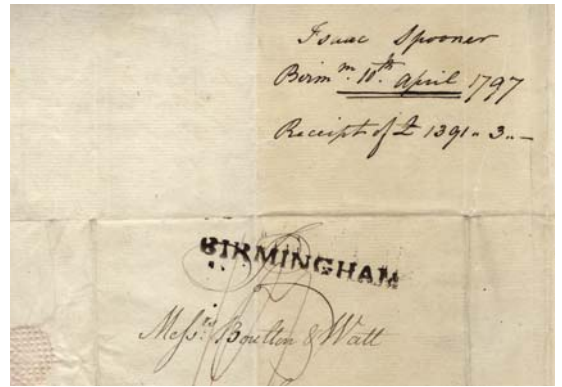 Isaac Spooner
Birmm. 10th. April 1797
Receipt of £ 1391 " 3 " —
BIRMINGHAM
Messrs. Boulton & Watt